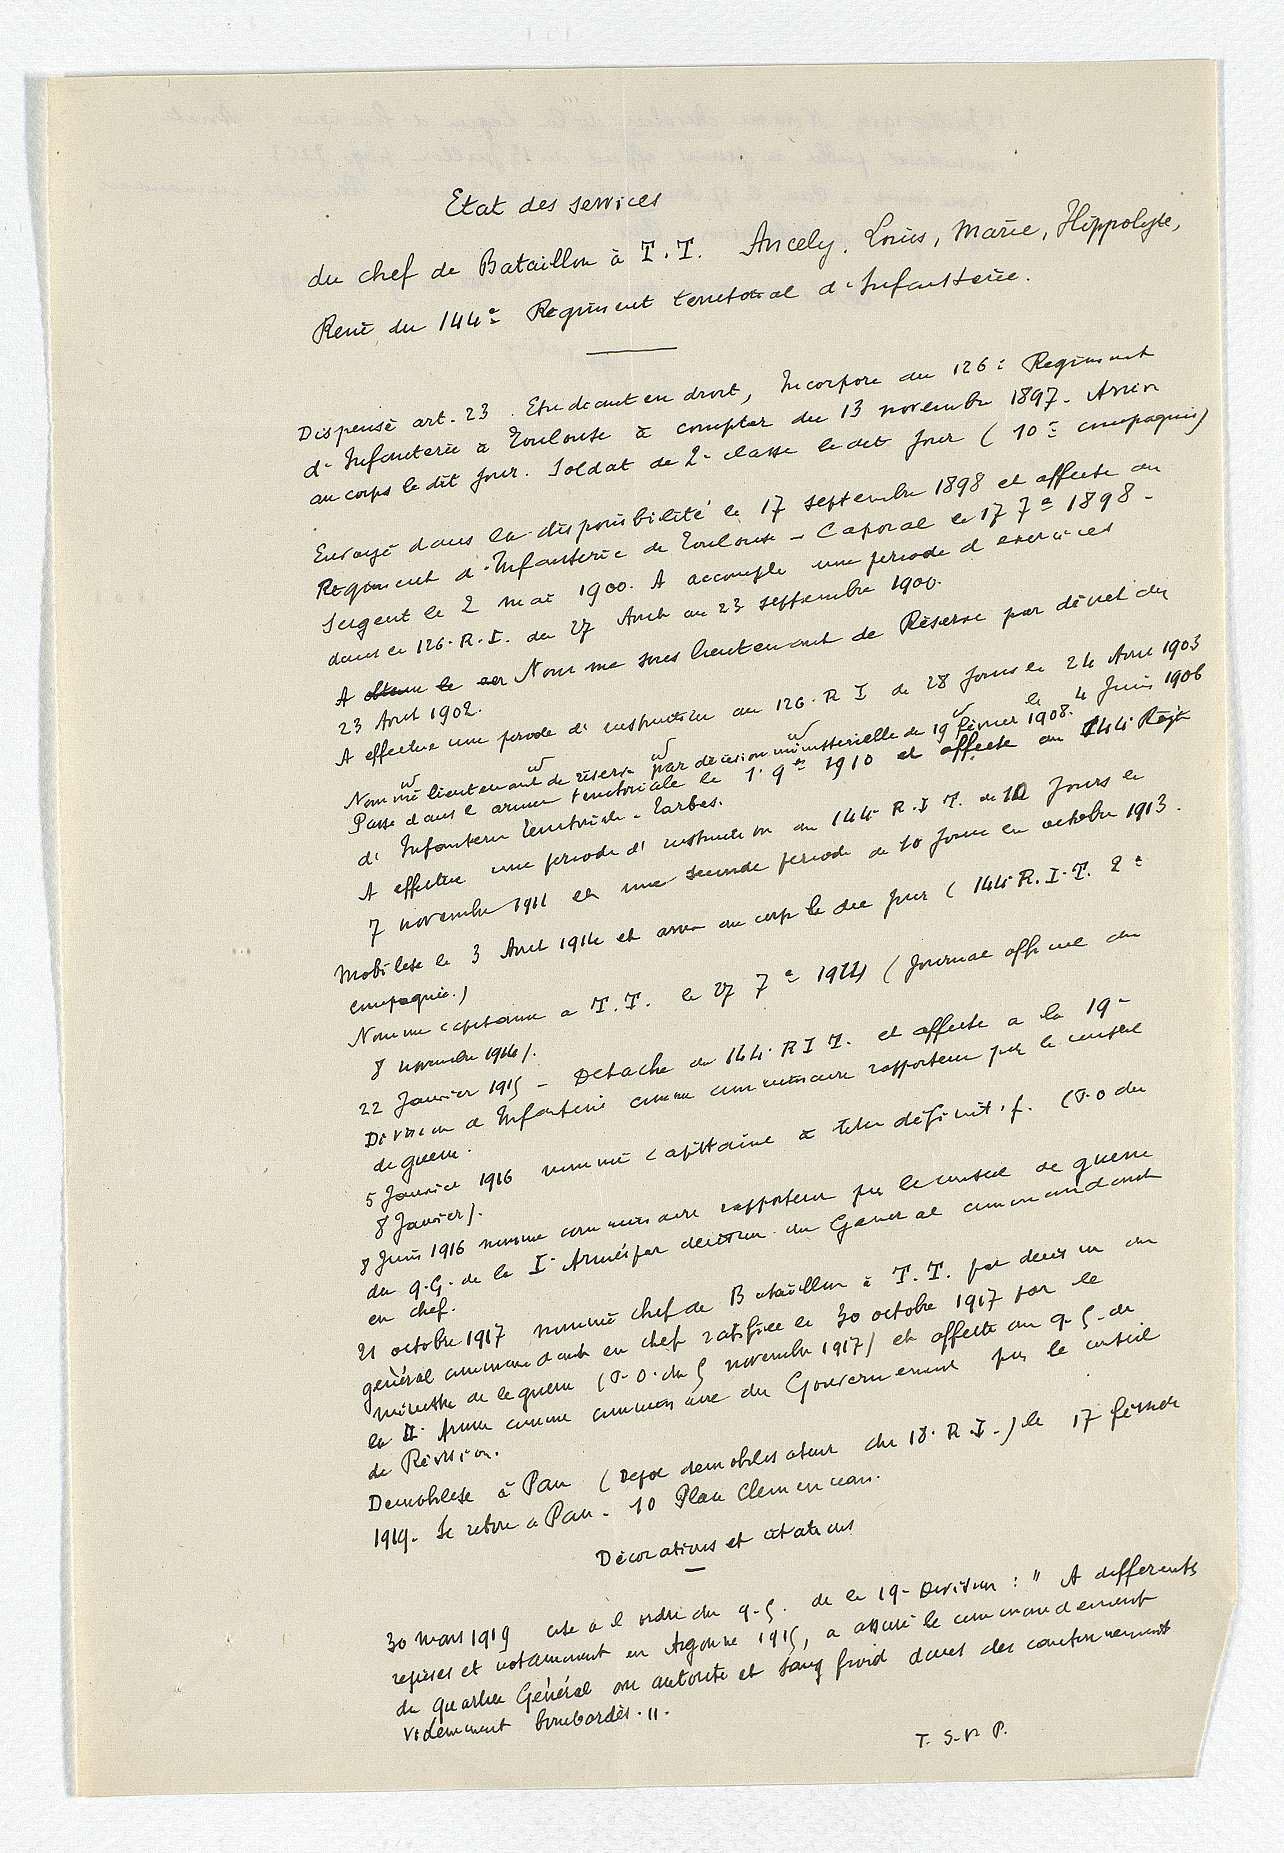 Etat des services
du chef de Bataillon à T.T. Ancely, Louis, Marie, Hippolyte,
René du 144e Regiment territorial d'Infanterie.
Dispensé art. 23. Etudiant en droit, Incorpore au 126e Regiment
d'Infanterie à Toulouse à compter du 13 novembre 1897. Arrivé
au corps le dit jour. Soldat de 2e classe le dit jour (10e compagnie)
Envoyé dans la disponibilité le 17 septembre 1898 et affecté au
Regiment d'Infanterie de Toulouse - Caporal le 17 7e 1898 -
Sergent le 2 mai 1900. A accompli une periode d'exercices
dans le 126. R.I. du 27 Août au 23 septembre 1900.
A obtenu le Nomme sous lieutenant de Réserve par décret du
23 Avril 1902.
A effectué une periode d'instruction au 126. R I de 28 jours le 24 Avril 1903
le 4 Juin 1906
Nommé lieutenant de réserve par décision ministérielle du 19 février 1908.
Passe dans l'armée territoriale le 1. 9re 1910 et affecte au 144e Régt
d'Infanterie Territoriale - Tarbes.
A effectué une periode d'instruction au 144e R.I.T. de 10 jours le
7 novembre 1911 et une seconde periode de 10 jours en octobre 1913.
Mobilise le 3 Aout 1914 et arrivé au corps le dit jour (144e R.I.T. 2e
compagnie.)
Nomme capitaine a T.T. le 27 7e 1914 (Journal officiel du
8 novembre 1914).
22 Janvier 1915 - Detache du 144. R I T. et affecte a la 19e
Division d'Infanterie comme commissaire rapporteur près le conseil
de guerre.
5 Janvier 1916 nommé capitaine à titre définitif. (J.O du
8 Janvier).
8 Juin 1916 nomme commissaire rapporteur près le conseil de guerre
du q.G. de la I Armée par decision du General commandant
en chef.
21 octobre 1917 nommé chef de Bataillon à T.T. par decision du
général commandant en chef ratifiée le 30 octobre 1917 par le
ministre de la guerre (J.O. du 5 novembre 1917) et affecté au q.G. de
la II Armée comme commissaire du Gouvernement près le conseil
de Révision.
Demobilise à Pau (Depot demobilisateur du 18. R.I.) le 17 février
1919. Se retire a Pau. 10 Place Clemenceau.
Décorations et citations
30 mars 1919 cité à l'ordre du q.G. de la 19e Division: " A differentes
reprises et notamment en Argonne 1915, a assuré le commandement
du quartier Général avec autorité et sang froid dans des cantonnements
violemment bombardés.".
T.S.V.P.